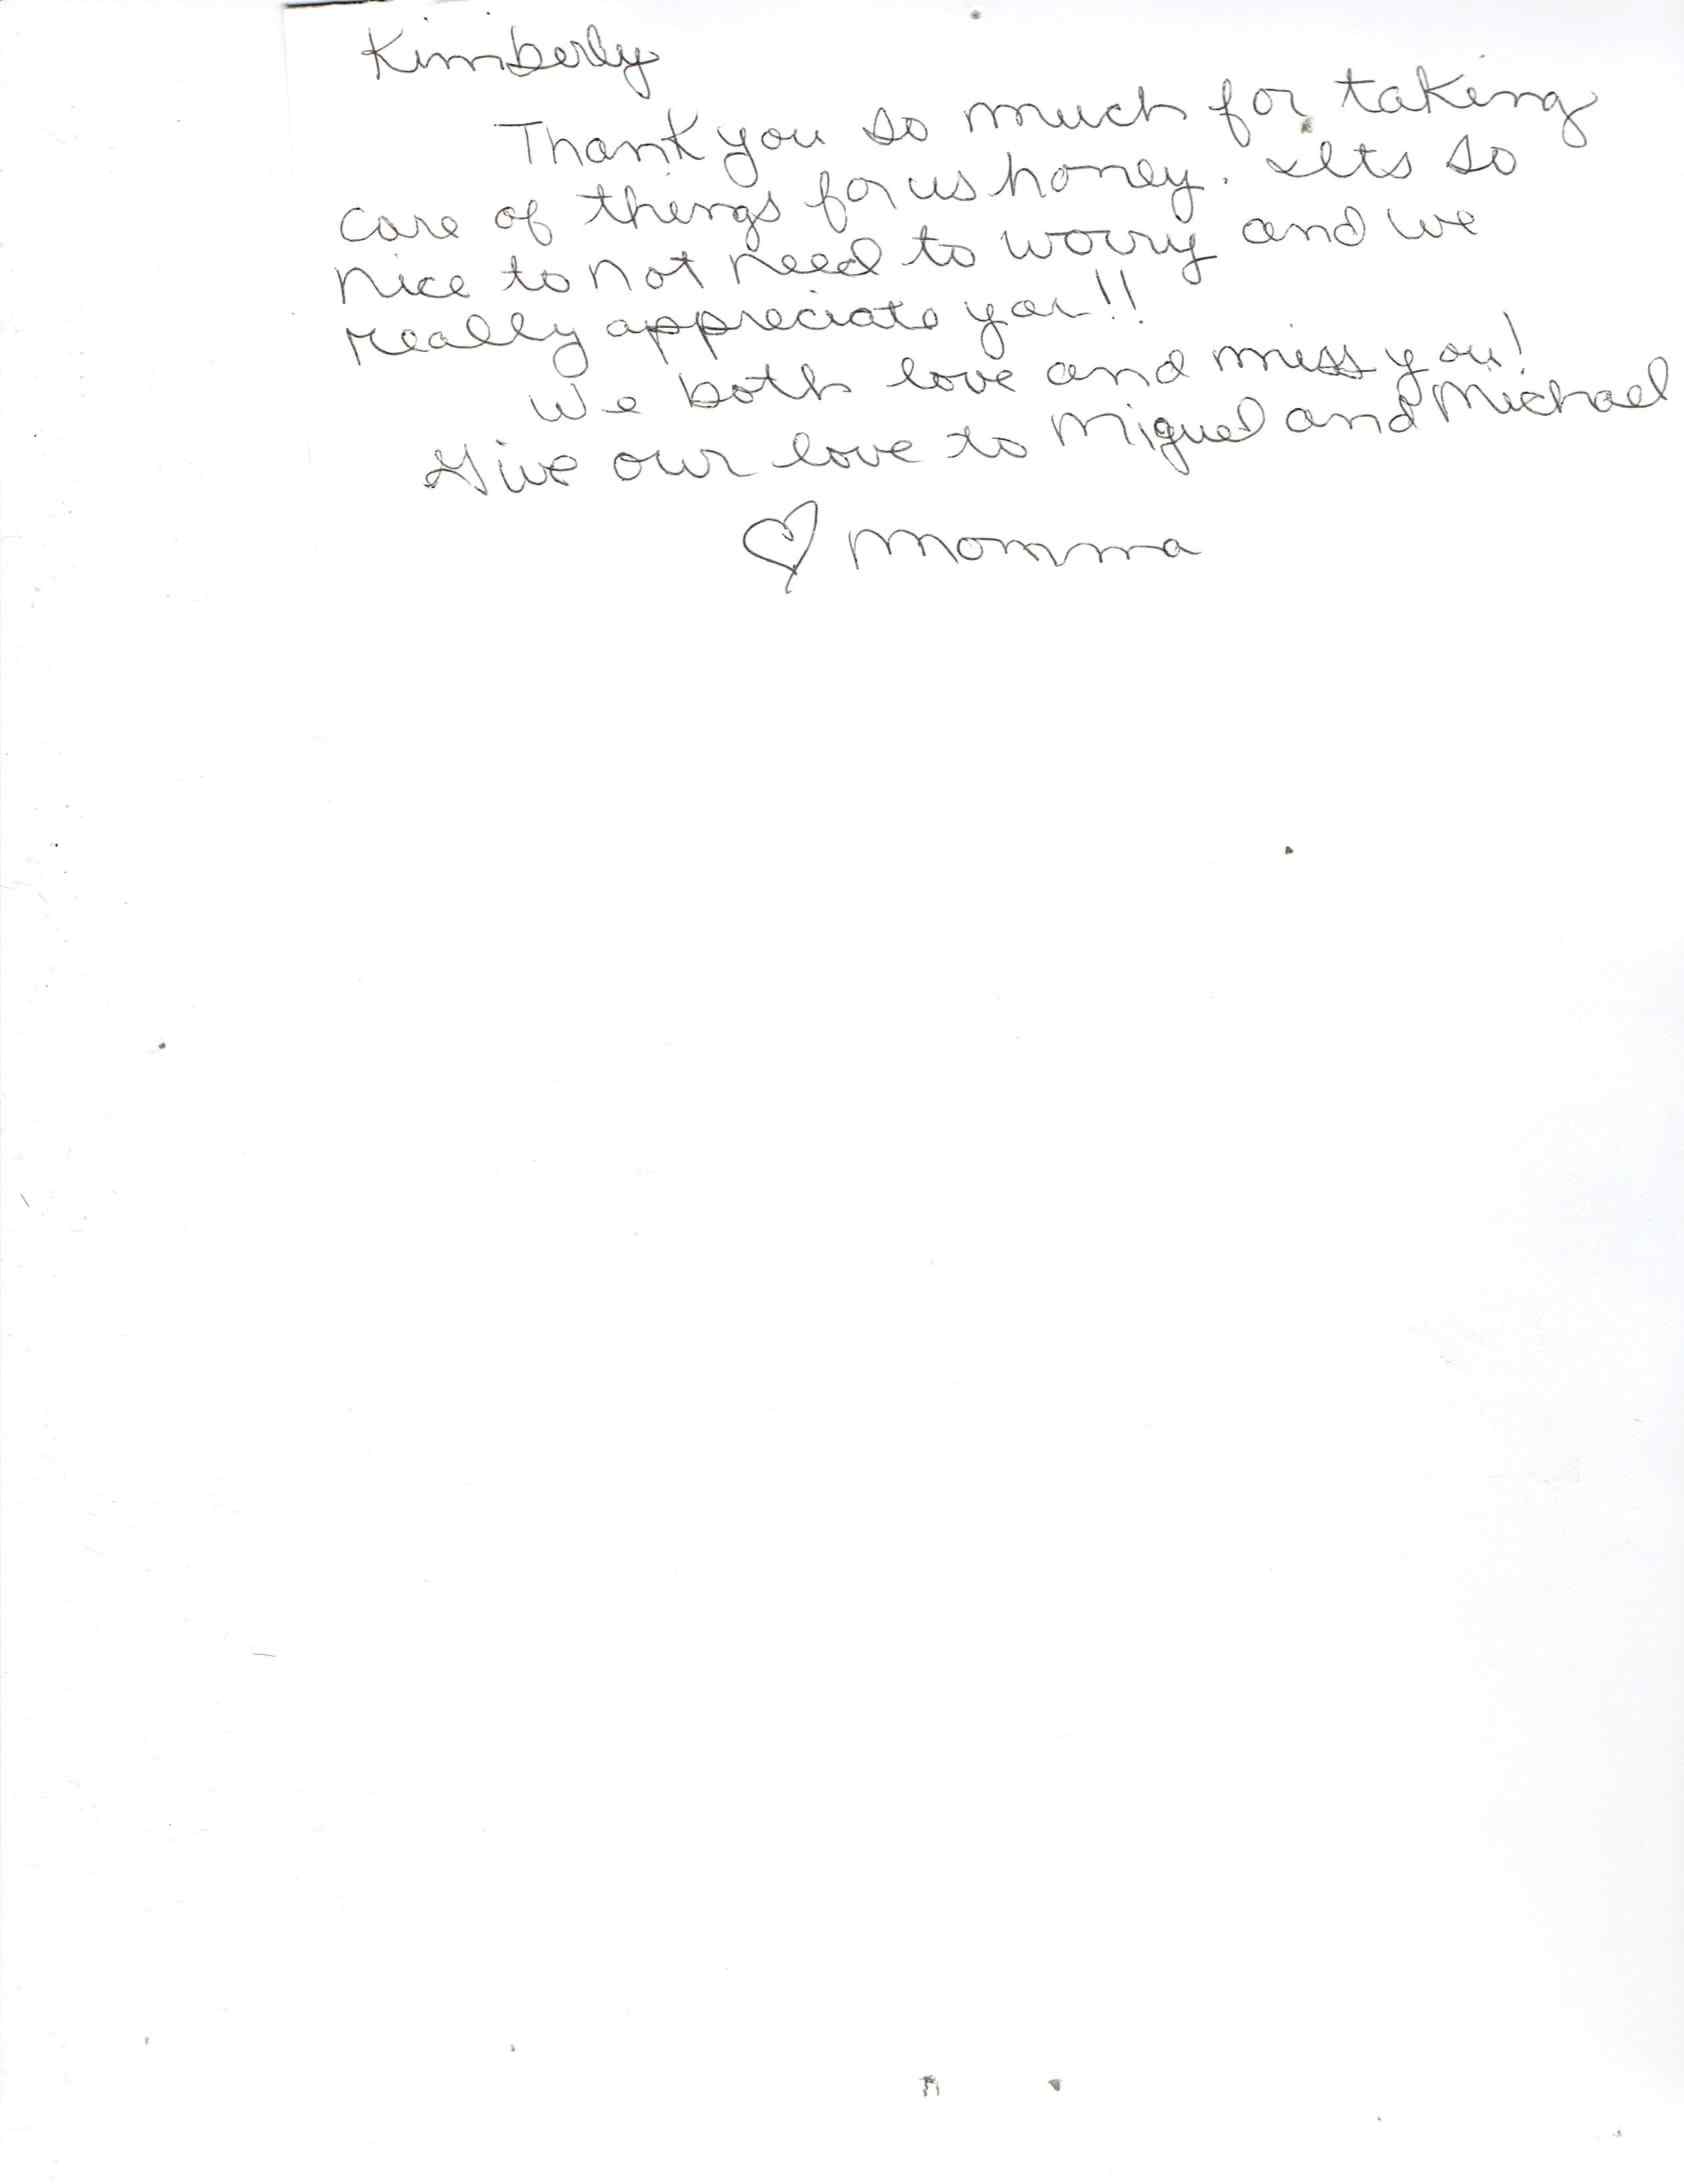 Kimberly
Thank you so much for taking
care of things for us honey. Its so
nice to not need to worry and we
really appreciate you!!
We both love and miss you!
Give our love to Miguel and Michael
♡ Momma